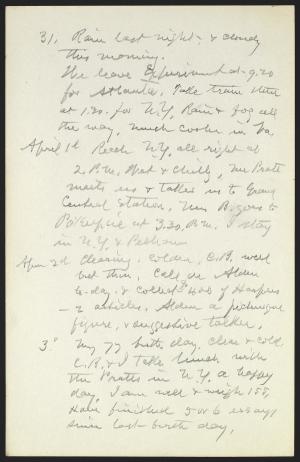 31, Rain last night, & cloudy
this morning.
We leave Experiment at 9.20
for Atlanta, Take train there
at 1.20. for N.Y., Rain & fog all
the way, much cooler in Va.
April 1st Reach N.Y. all right at
2 P.M. Wet & chilly, Mr Pratt
meets us & takes us to Grand
Central Station, goes to
Po'keepsie at 3.30. P.M. I stay
in N.Y. &
Apr. 2d Clearing, colder, C.B. well
but thin, Call on Alden
to-day, & collect of Harpers
– 2 articles, Alden a picturesque
figure, & suggestive talker,
3d My 77 birth day, clear & cold
C.B. & I take lunch with
the Pratts in N.Y. a happy
day, I am well & weigh 155,
Have finished 5 or 6 essays
since last birth day,